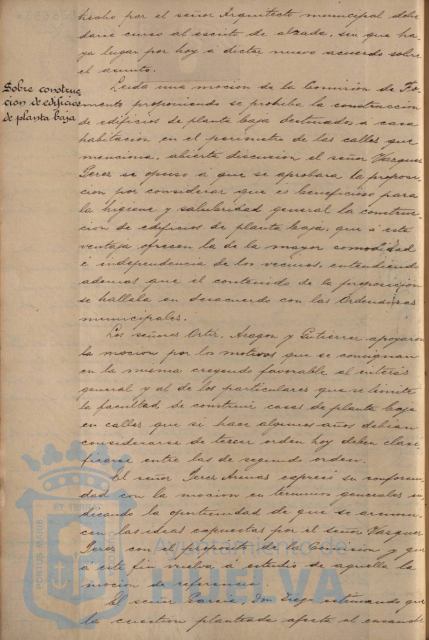 hecho por el señor Arquitecto municipal debe
darse curso al escrito de alzada, sin que ha
ya lugar por hoy a dictar nuevo acuerdo sobre
el asunto.
Sobre construc
cion de edificios
de planta baja
Leida una mocion de la Comisión de Fo
mento proponiendo se prohiba la construcción
de edificios de planta baja destinados a casa
habitación en el perimetro de las calles que
menciona, abierta discusion el señor Vazquez
Perez se opuso a que se aprobara la proposi
cion por considerar que es beneficioso para
la higiene y salubridad general la construc
cion de edificios de planta baja, que a esta
ventaja ofrecen la de la mayor comodidad
é independencia de los vecinos, entendiendo
ademas que el contenido de la proposicion
se hallaba en desacuerdo con las Ordenanzas
municipales.
Los señores Ortiz, Aragon y Gutierrez apoyaron
la mocion por los motivos que se consignan
en la misma creyendo favorable al interés
general y al de los particulares que se limite
la facultad de construir casas de planta baja
en calles que si hace algunos años debian
considerarse de tercer orden hoy deben clasi
ficarse entre las de segundo orden.
El señor Perez Arenas expresó su conformi
dad con la mocion en terminos generales in
dicando la oportunidad de que se armoni
cen las ideas expuestas por el señor Vazquez
Perez con el proposito de la Comision y que
a este fin vuelva a estudio de aquella la
mocion de referencia.
El señor Garcia, Don Diego estimando que
la cuestion planteada afecta al
Ayuntamiento de
HUELVA